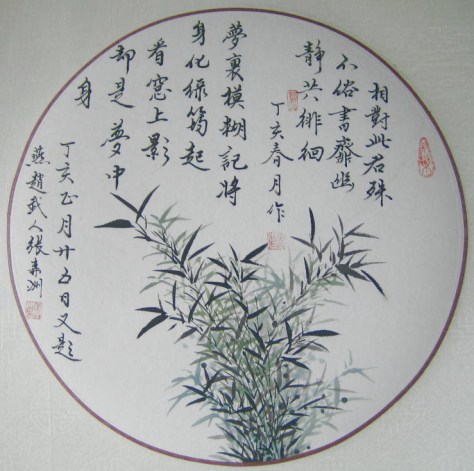 相對此君殊
不俗書齋幽
靜共徘徊
丁亥春月作
夢裏模糊記將
身化綠筠起
看窓上影
却是夢中
身
丁亥正月廿五日又題
燕趙武人張壽洲